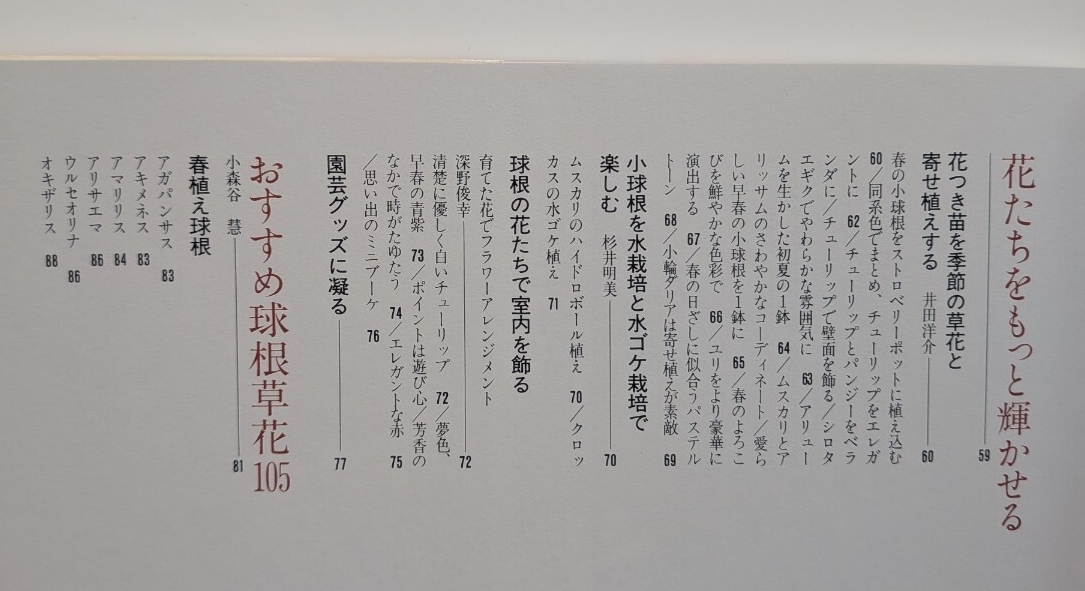 花たちをもっと輝かせる
59
花つき苗を季節の草花と
寄せ植えする 井田洋介 60
春の小球根をストロベリーポットに植え込む
60/同系色でまとめ、チューリップをエレガ
ントに 62/チューリップとパンジーをベラ
ンダに/チューリップで壁面を飾る/シロタ
エギクでやわらかな雰囲気に 63/アリュー
ムを生かした初夏の1鉢 64/ムスカリとア
リッサムのさわやかなコーディネート/愛ら
しい早春の小球根を1鉢に 65/春のよろこ
びを鮮やかな色彩で 66/ユリをより豪華に
演出する 67/春の日ざしに似合うパステル
トーン 68/小輪ダリアは寄せ植えが素敵
69
小球根を水栽培と水ゴケ栽培で
楽しむ 杉井明美 70
ムスカリのハイドロボール植え 70/クロッ
カスの水ゴケ植え 71
球根の花たちで室内を飾る
育てた花でフラワーアレンジメント
深野俊幸 72
清楚に優しく白いチューリップ 72/夢色、
早春の青紫 73/ポイントは遊び心/芳香の
なかで時がたゆたう 74/エレガントな赤 75
/思い出のミニブーケ 76
園芸グッズに凝る 77
おすすめ球根草花105
小森谷 慧 81
春植え球根
アガパンサス 83
アキメネス 83
アマリリス 84
アリサエマ 86
ウルセオリナ 86
オキザリス 88